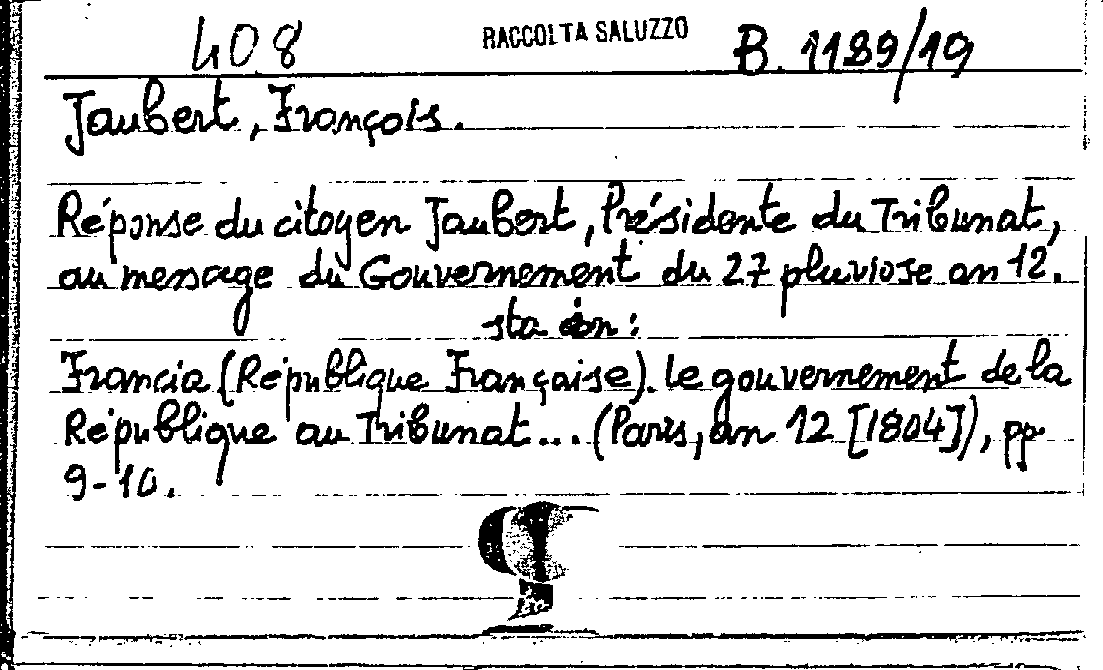 408 RACCOLTA SALUZZO B. 1189/19
Jaubert, François.
Réponse du citoyen Jaubert, Présidente du Tribunat,
au message du Gouvernement du 27 pluviose an 12.
sta in:
Francia (République Française). Le gouvernement de la
République au Tribunat... (Paris, an 12 [1804]), pp.
9-10.